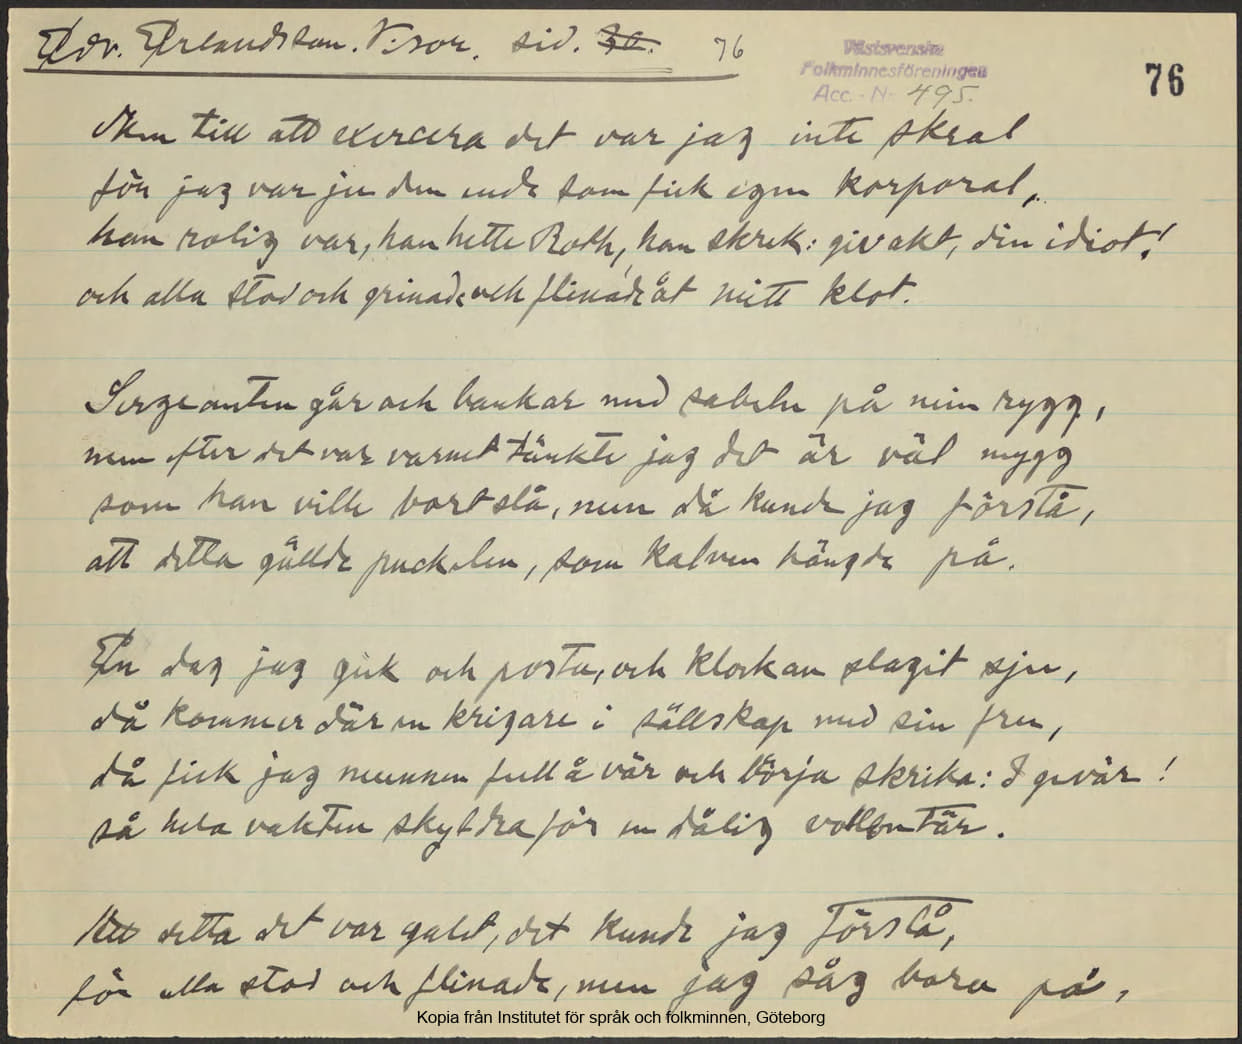 Edv. Erlandsson. Visor. sid. 76
Västsvenska
Folkminnesföreningen
Acc. - N- 495.
76
Men till att exercera det var jag inte skral
för jag var ju den enda som fick egen korporal,
han rolig var, han hette Roth, han skrek: giv akt, din idiot!
och alla stod och grinade och flinade åt mitt klot.
Sergeanten går och bankar med sabeln på min rygg,
men efter det var varmt tänkte jag det är väl mygg
som han ville bort slå, men då kunde jag förstå,
att detta gällde puckelen, som kalven hängde på.
En dag jag gick och posta, och klockan slagit sju,
då kommer där en krigare i sällskap med sin fru,
då fick jag munnen full å vär och börja skrika: I gevär!
så hela vakten skyldra för en dålig vollontär.
Att detta det var galet, det kunde jag förstå,
för alla stod och flinade, men jag såg bara på,
Kopia från Institutet för språk och folkminnen, Göteborg